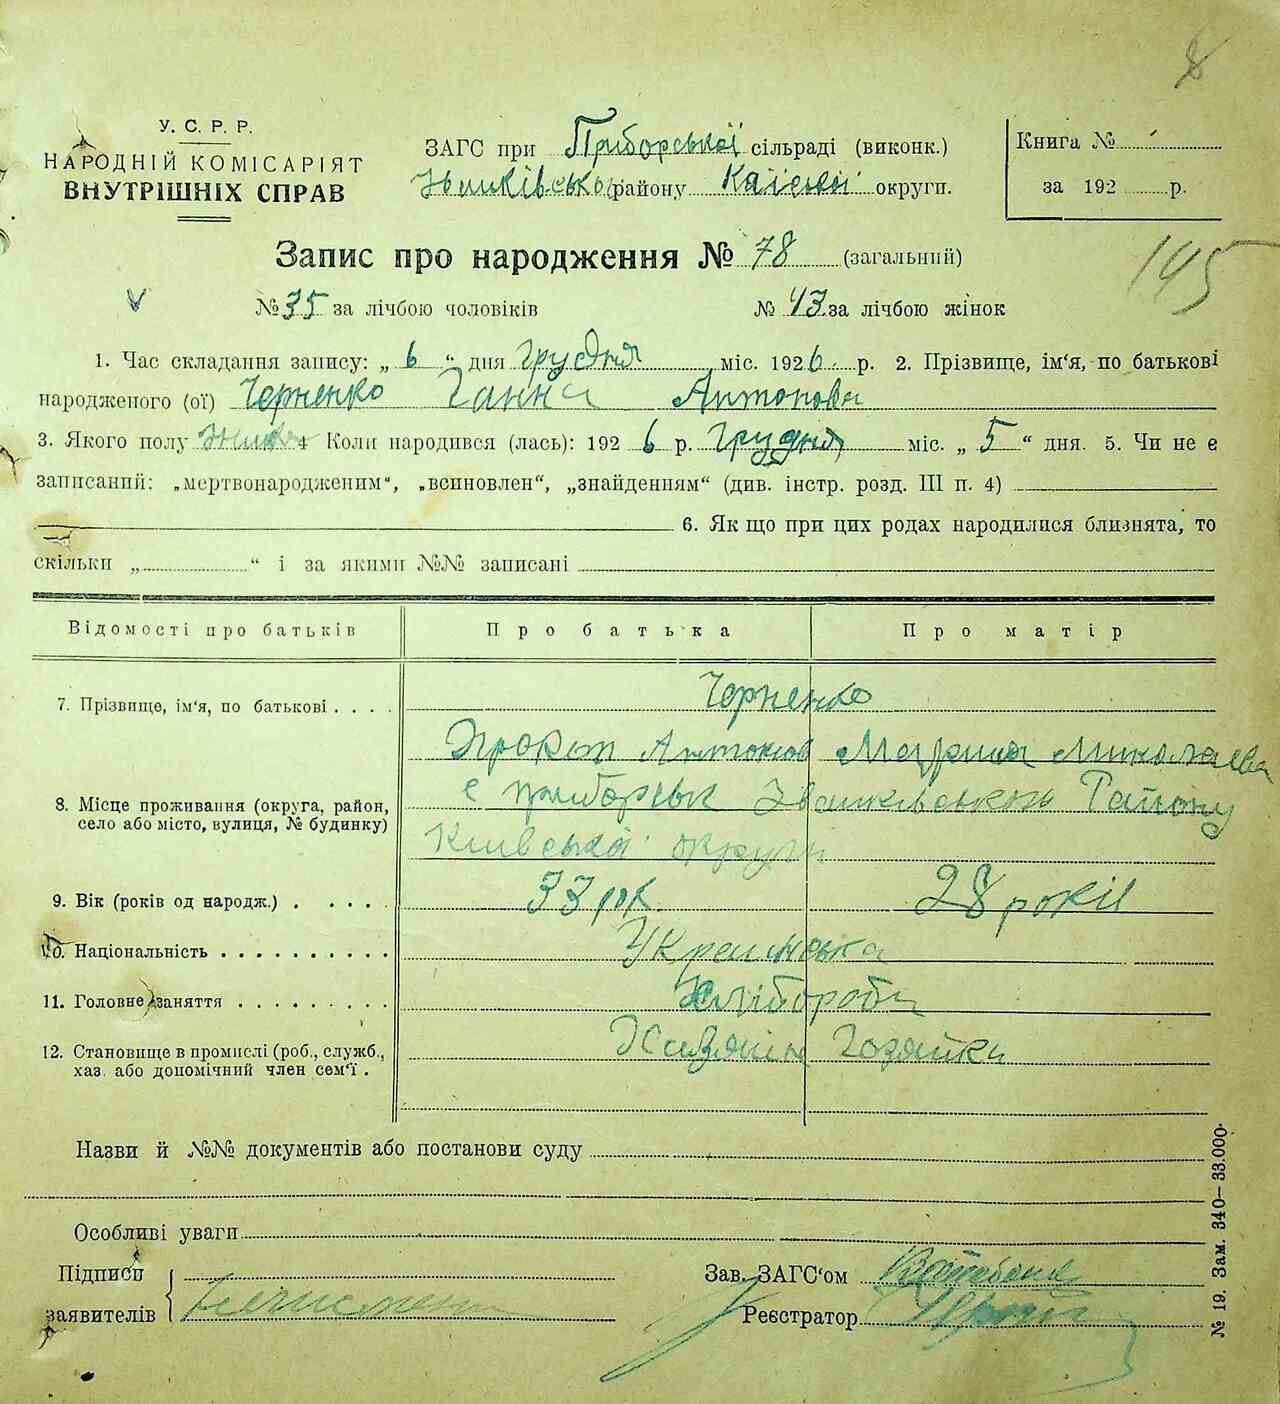 8
У. С. Р. Р.
НАРОДНІЙ КОМІСАРІЯТ
ВНУТРІШНІХ СПРАВ
ЗАГС при Приборської сільраді (виконк.)
району Київської округи.
Книга №
за 192 р.
145
Запис про народження № 78 (загальний)
№ 35 за лічбою чоловіків № 43 за лічбою жінок
1. Час складання запису: „ 6 “ дня грудня міс. 1926 р. 2. Прізвище, ім'я, по батькові
народженого (ої) Черненко Ганна Антонова
3. Якого полу 4 Коли народився (лась): 192 6 р. Грудня міс. „ 5 “ дня. 5. Чи не є
записаний: „мертвонародженим“, „всиновлен“, „знайденням“ (див. інстр. розд. III п. 4)
6. Як що при цих родах народилися близнята, то
скільки „ “ і за якими №№ записані
Відомості про батьків Про батька Про матір
7. Прізвище, ім'я, по батькові . . . . Черненко
Антонов Мотрина Миколаєва
8. Місце проживання (округа, район, с Приборськ Іванківського Району
село або місто, вулиця, № будинку)
Київської округи
9. Вік (років од народж.) . . . . . 33 рок 28 років
10. Національність . . . . . . . . . . Українська
11. Головне заняття . . . . . . . . . Хлібороби
12. Становище в промислі (роб., служб., Хазяїн Хозяйка
хаз. або допомічний член сем'ї .
Назви й №№ документів або постанови суду
Особливі уваги
Підписи
заявителів
Зав. ЗАГС'ом
Реєстратор
№ 19. Зам. 340–33.000.